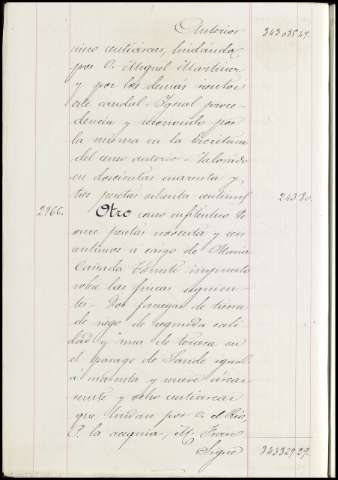 Anterior 343.035.49.
cinco centiáreas, lindando
por O. Miguel Martinez
y por los demas vientos
este caudal. Igual proce-
dencia y reconocido por
la misma en la Escritura
del censo anterior. Valorado
en doscientas cuarenta y
tres pesetas ochenta centimos 243.80.
2966. Otro censo enfitéutico de
once pesetas noventa y
centimos a cargo de Maria
Cañada impuesto
sobre las fincas siguien-
tes. Dos fanegas de tierra
de riego de segunda cali-
dad y una de tercera en
el parage de igual
á noventa y nueve áreas
veinte y ocho centiáreas
que lindan por O. el Rio,
P. la acequia, M. Fran-
Sigue 343.329.29.